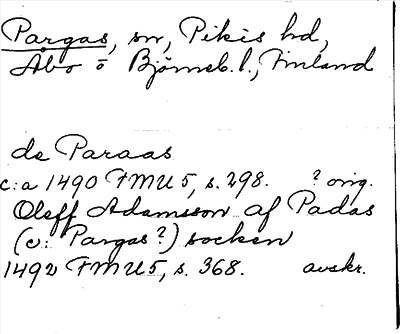 Pargas, sn, Pikis hd,
Åbo o Björneb. l., Finland
de Paraas
c:a 1490 FMU 5, s. 298. ? orig.
Oleff Adamsson af Padas
(v: Pargas?) socken
1492 FMU 5, s. 368. avskr.